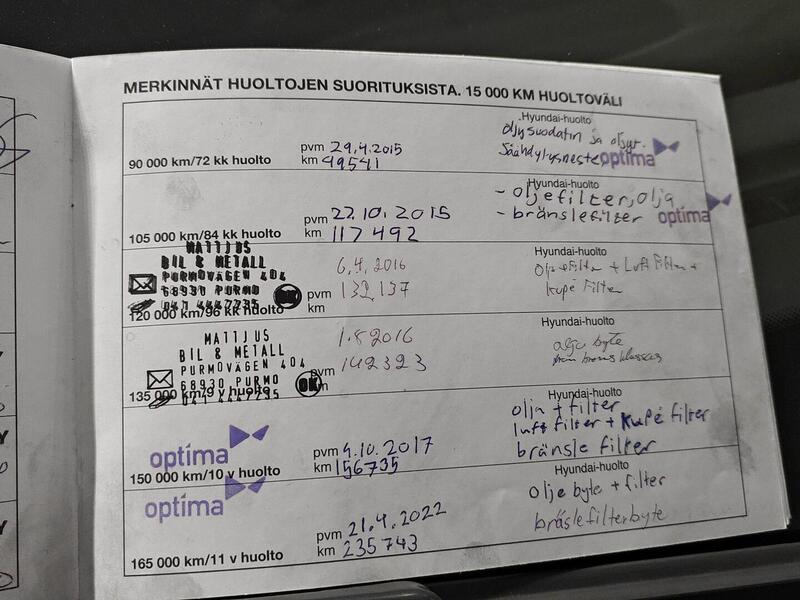 MERKINNÄT HUOLTOJEN SUORITUKSISTA. 15 000 KM HUOLTOVÄLI
Hyundai-huolto
öljysuodatin ja öljyt.
Jäähdytysneste optima
pvm 29.4.2015
km 99541
90 000 km/72 kk huolto
Hyundai-huolto
- oljefilter, olja
- bränslefilter optima
pvm 27.10.2015
km 117492
105 000 km/84 kk huolto
MATTJUS
BIL & METALL
PURMOVÄGEN 404
68930 PURMO
041 4447235
OK
120 000 km/96 kk huolto
pvm 6.4.2016
km 132,137
Hyundai-huolto
Oljefilter + Luftfilter +
kupé filter
MATTJUS
BIL & METALL
PURMOVÄGEN 404
68930 PURMO
041 4447235
OK
135 000 km/9 v huolto
pvm 1.8 2016
km 142323
Hyundai-huolto
olje byte
optima
150 000 km/10 v huolto
pvm 4.10.2017
km 156735
Hyundai-huolto
olja + filter
luft filter + Kupé filter
bränsle filter
optima
165 000 km/11 v huolto
pvm 21.4.2022
km 235743
Hyundai-huolto
Olje byte + filter
bräslefilterbyte